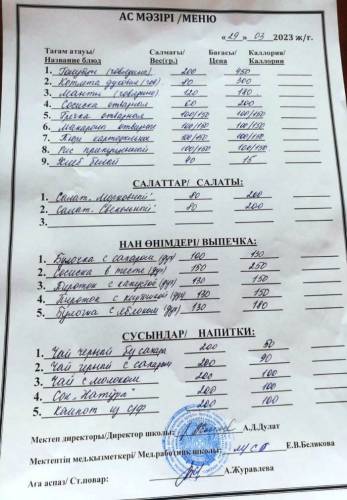 АС МӘЗІРІ /МЕНЮ
«29» 03 2023 ж/г.
Тағам атауы/ Салмағы/ Бағасы/ Каллория/
Название блюд Вес(гр.) Цена Каллории
1. (говядина) 200 450
2. Котлета духовая 80 300
3. Манты (говядина) 120 180
4. Сосиска отварная 60 200
5. Гречка отварная 100/150 100/150
6. Макароны отварные 100/150 100/150
7. Пюре картофельное 100/150 100/150
8. Рис припущенный 100/150 100/150
9. Хлеб белый 40 15
САЛАТТАР/ САЛАТЫ:
1. Салат "Морковный" 80 200
2. Салат "Свекольный" 80 200
3.
НАН ӨНІМДЕРІ/ ВЫПЕЧКА:
1. Булочка с сахаром 100 130
2. Сосиска в тесте 150 250
3. Пирожок с капустой 130 150
4. Пирожок с картошкой 130 150
5. Булочка с яблоком 130 180
СУСЫНДАР/ НАПИТКИ:
1. Чай черный без сахара 200 50
2. Чай черный с сахаром 200 90
3. Чай с молоком 200 100
4. Сок "Натура" 200 100
5. Компот из с/ф 200 100
Мектеп директоры/Директор школы: А.Д.Дулат
Мектептің мед.қызметкері/ Мед.работник школы: Е.В.Белякова
Аға аспаз/ Ст.повар: А.Журавлева